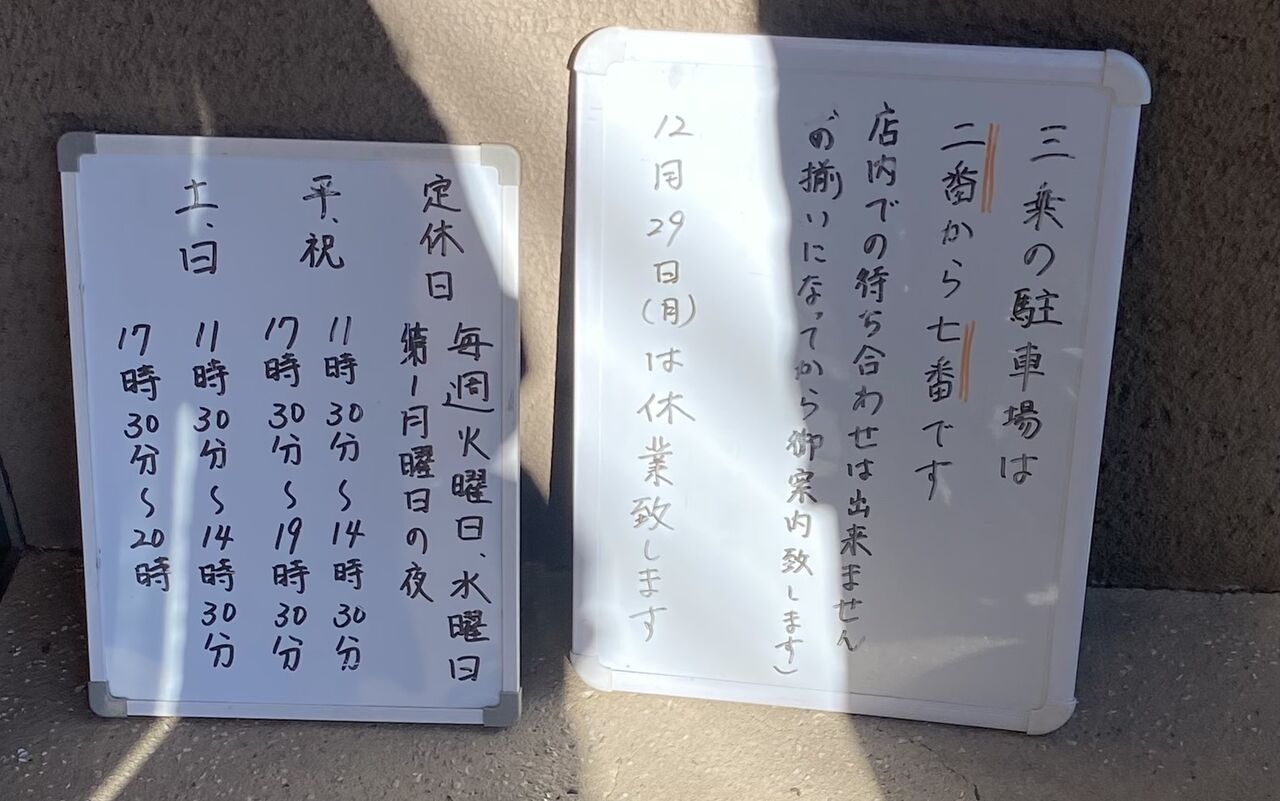 定休日 毎週火曜日、水曜日
第1月曜日の夜
平、祝 11時30分〜14時30分
17時30分〜19時30分
土、日 11時30分〜14時30分
17時30分〜20時
三乗の駐車場は
二番から七番です
店内での待ち合わせは出来ません
お揃いになってから御案内致します)
12月29日(月)は休業致します